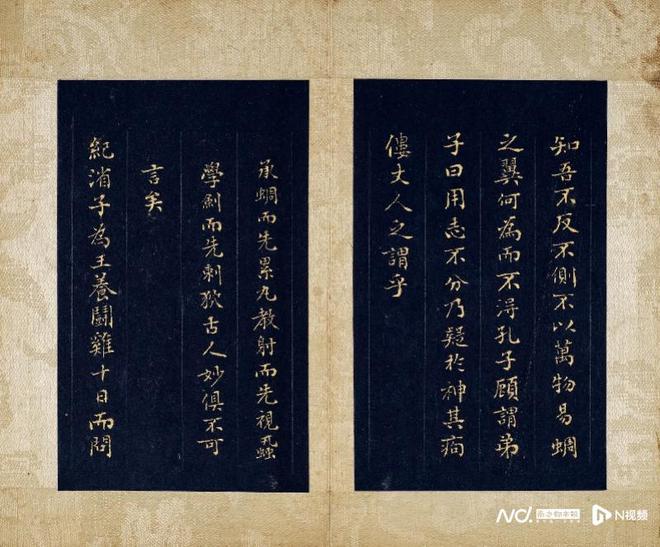 知吾不反不側不以萬物易蜩
之翼何為而不得孔子顧謂弟
子曰用志不分乃疑於神其痀
僂丈人之謂乎
承蜩而先累丸教射而先視蝨
學劍而先刺狄古人妙俱不可
言矣
紀渻子為王養鬭雞十日而問
N视频